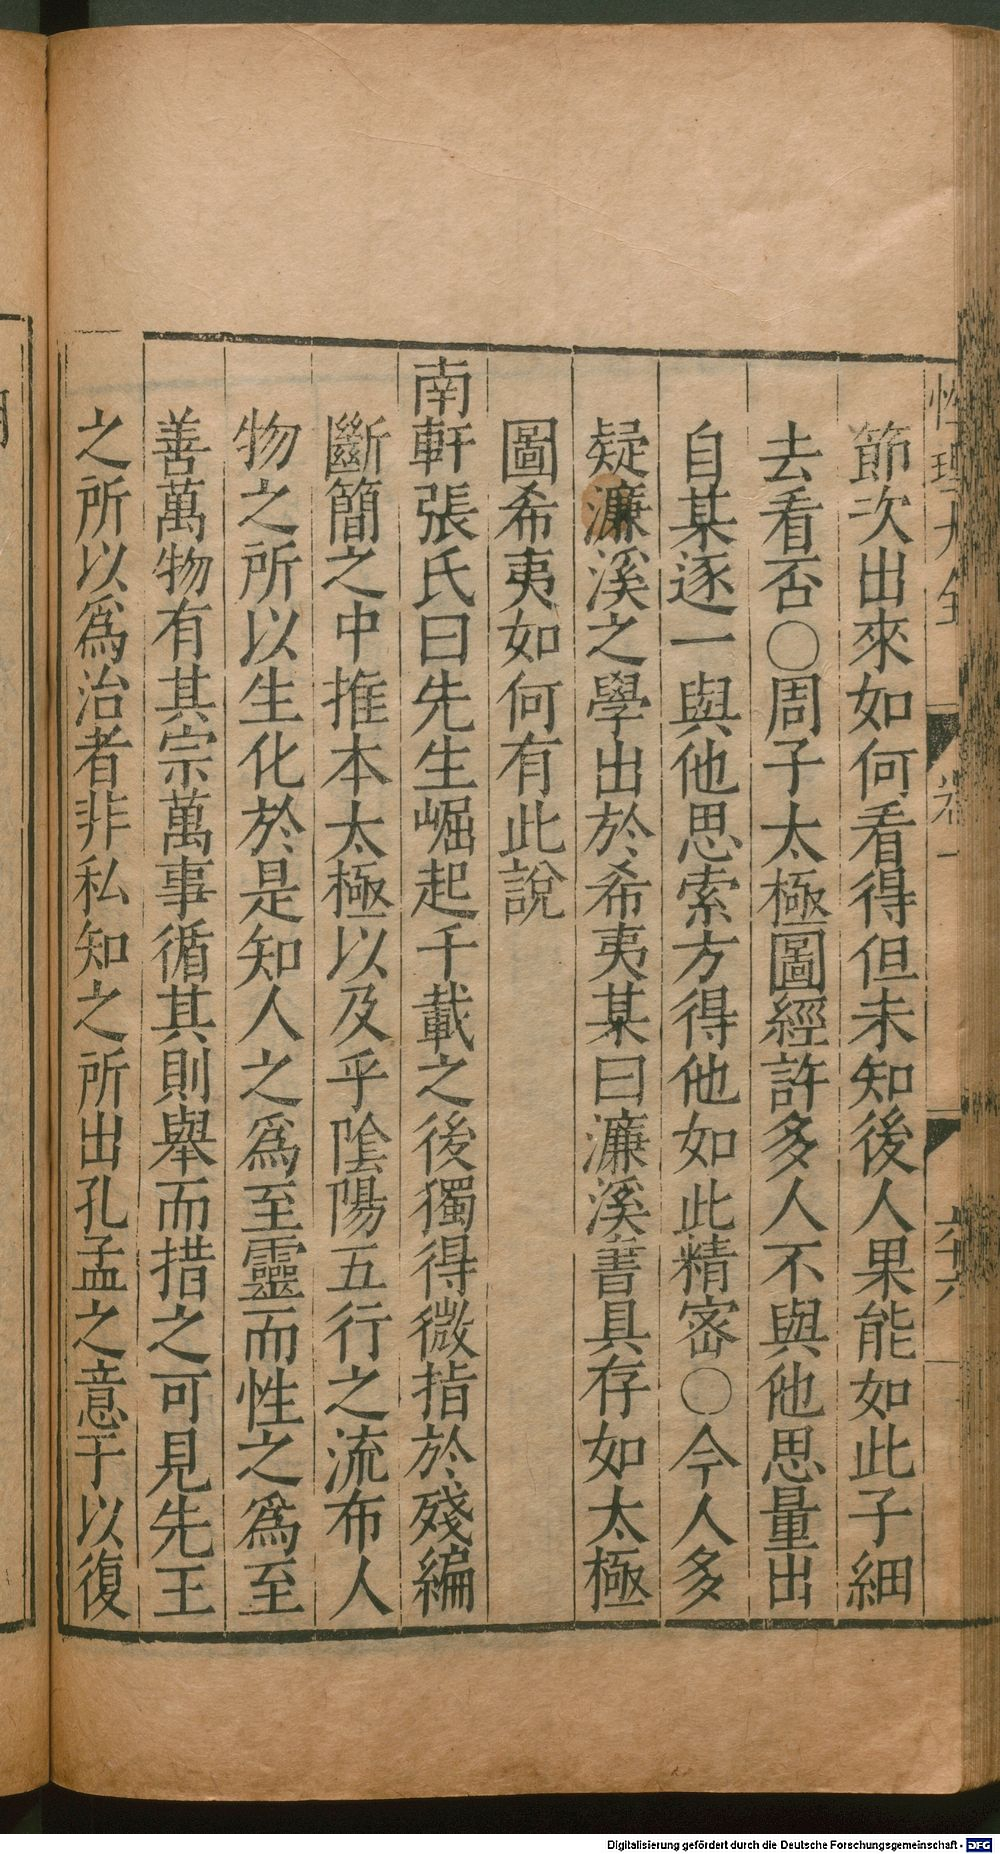 性理大全 卷一 六十六
節次出來如何看得但未知後人果能如此子細
去看否○周子太極圖經許多人不與他思量出
自某逐一與他思索方得他如此精密○今人多
疑濂溪之學出於希夷某曰濂溪書具存如太極
圖希夷如何有此說
南軒張氏曰先生崛起千載之後獨得微指於殘編
斷簡之中推本太極以及乎陰陽五行之流布人
物之所以生化於是知人之爲至靈而性之爲至
善萬物有其宗萬事循其則舉而措之可見先王
之所以爲治者非私知之所出孔孟之意于以復
Digitalisierung gefördert durch die Deutsche Forschungsgemeinschaft - DFG